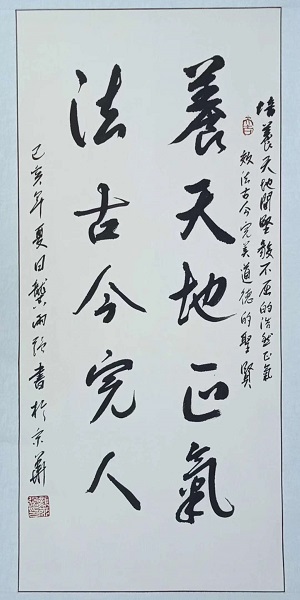 培養天地間堅毅不屈的浩然正氣
效法古今完美道德的聖賢
養天地正氣
法古今完人
己亥年夏日龔雨顼書於京華